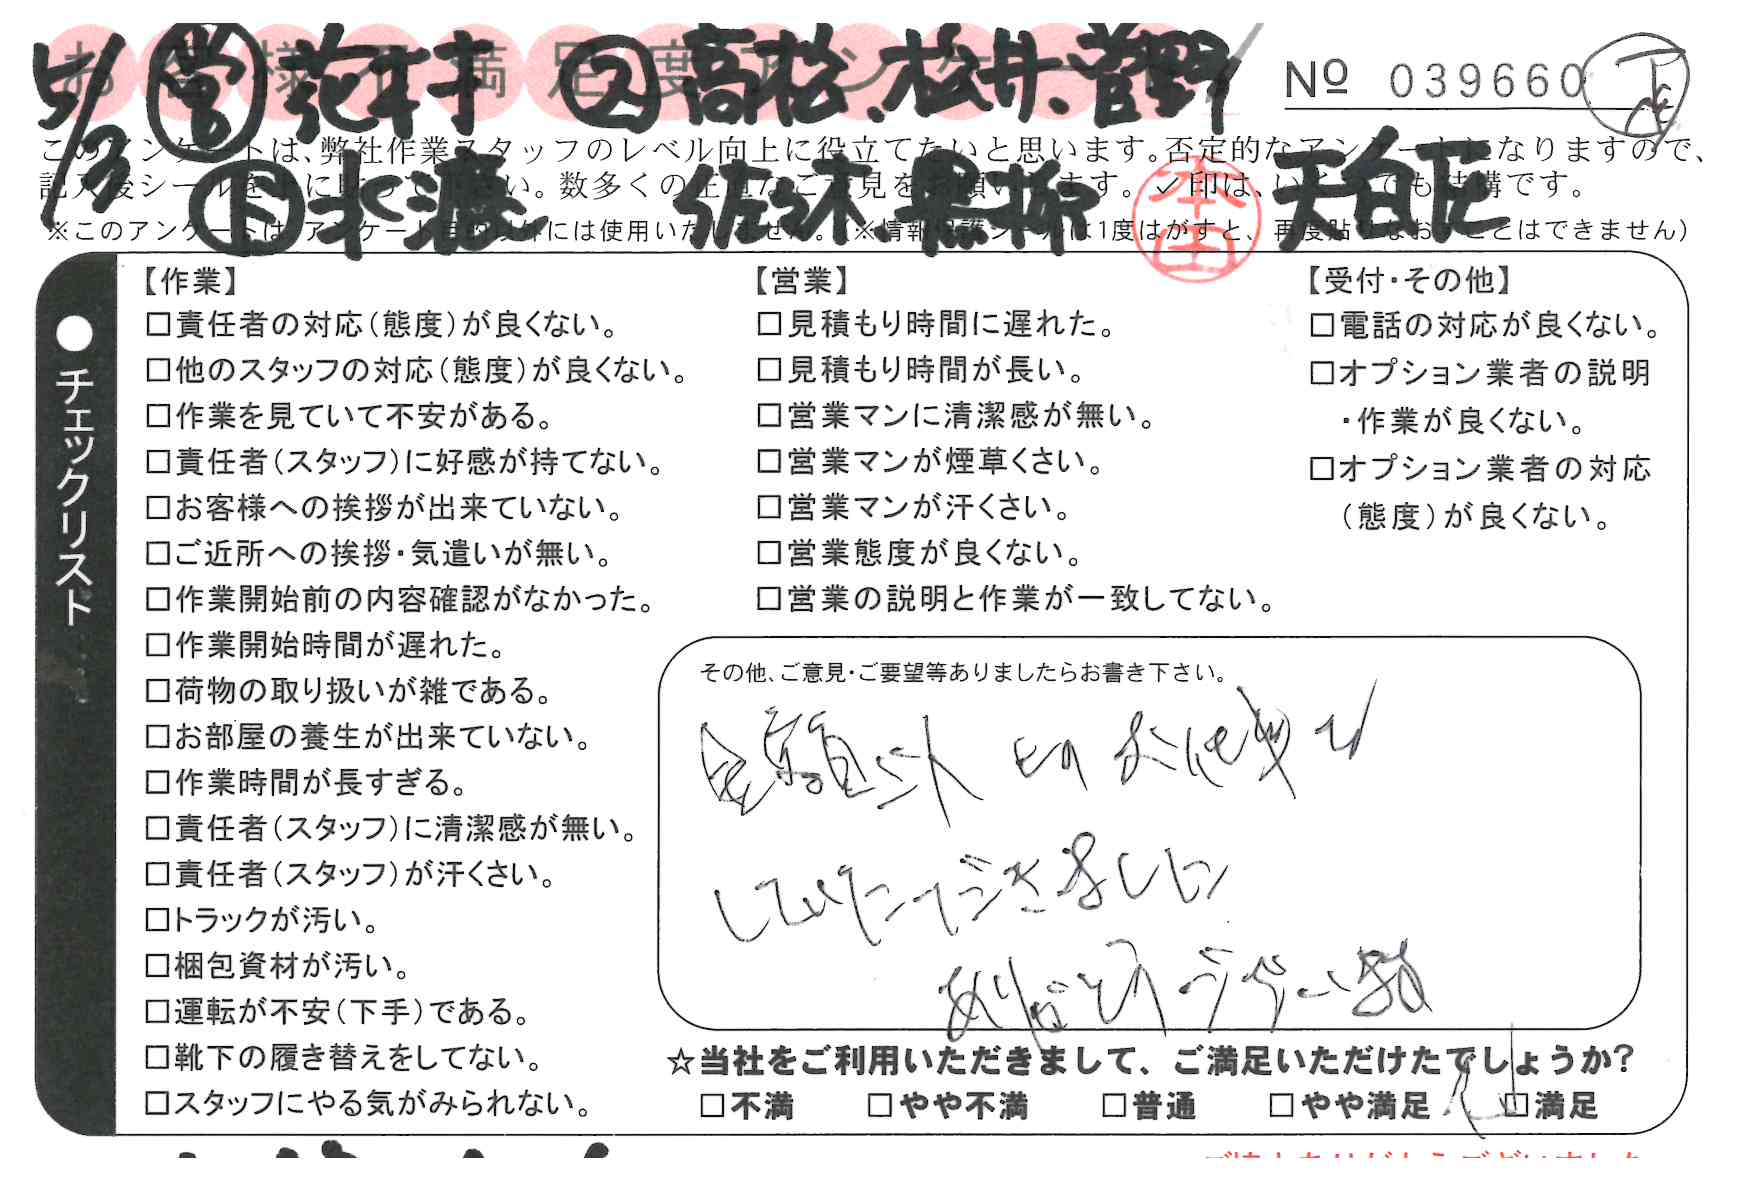 お客様ご満足度アンケート
5/3 営 花村 ② 高松、松井、菅野
№ 039660
このアンケートは、弊社作業スタッフのレベル向上に役立てたいと思います。否定的なアンケートになりますので、
記入後シールを下に貼って下さい。数多くの正直なご意見をお願いします。✓印は、いくつでも結構です。
下 水漉、佐々木、黒柳 天白区
本田
※このアンケートは、アンケート目的以外には使用いたしません。(※情報保護シールは1度はがすと、再度貼りなおすことはできません)
●チェックリスト
【作業】
□責任者の対応(態度)が良くない。
□他のスタッフの対応(態度)が良くない。
□作業を見ていて不安がある。
□責任者(スタッフ)に好感が持てない。
□お客様への挨拶が出来ていない。
□ご近所への挨拶・気遣いが無い。
□作業開始前の内容確認がなかった。
□作業開始時間が遅れた。
□荷物の取り扱いが雑である。
□お部屋の養生が出来ていない。
□作業時間が長すぎる。
□責任者(スタッフ)に清潔感が無い。
□責任者(スタッフ)が汗くさい。
□トラックが汚い。
□梱包資材が汚い。
□運転が不安(下手)である。
□靴下の履き替えをしてない。
□スタッフにやる気がみられない。
【営業】
□見積もり時間に遅れた。
□見積もり時間が長い。
□営業マンに清潔感が無い。
□営業マンが煙草くさい。
□営業マンが汗くさい。
□営業態度が良くない。
□営業の説明と作業が一致してない。
【受付・その他】
□電話の対応が良くない。
□オプション業者の説明
・作業が良くない。
□オプション業者の対応
(態度)が良くない。
その他、ご意見・ご要望等ありましたらお書き下さい。
金額以外のお仕事も
していただきました
ありがとうございます
☆当社をご利用いただきまして、ご満足いただけたでしょうか?
□不満 □やや不満 □普通 □やや満足 □満足